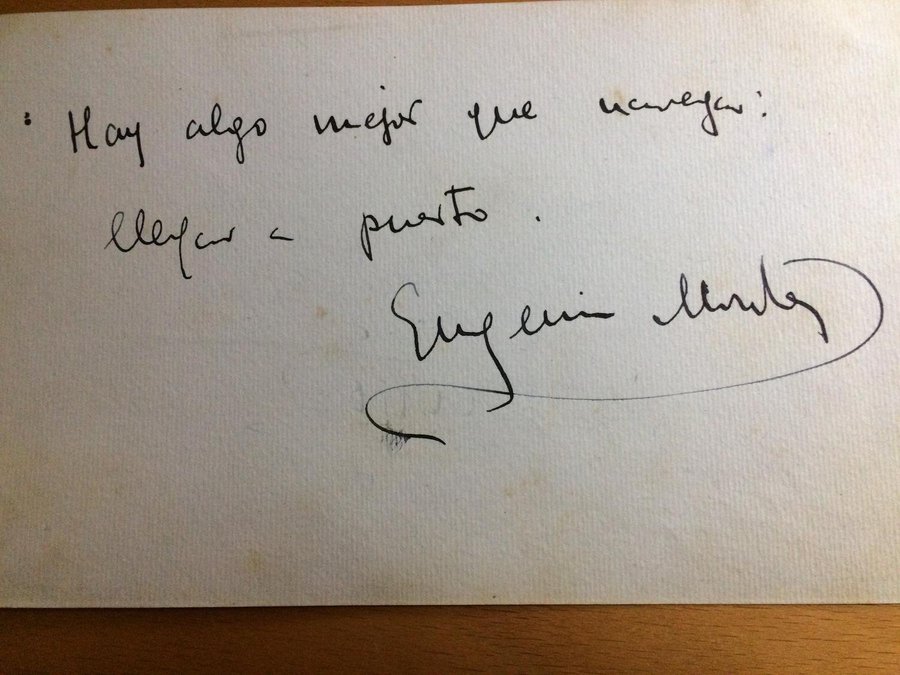 "Hay algo mejor que navegar:
llegar a puerto.
Eugenio Montes